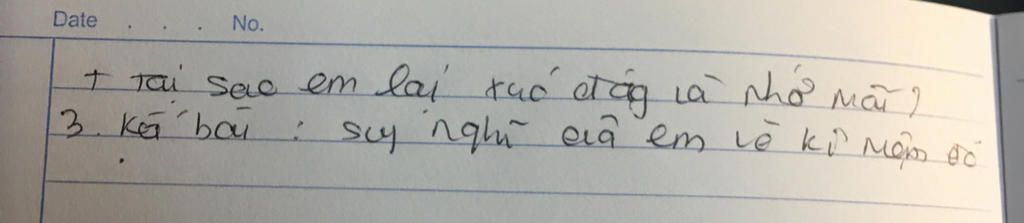 Date . . . No.
+ Tại sao em lại xúc động và nhớ mãi?
3. Kết bài : suy nghĩ của em về kỉ niệm đó